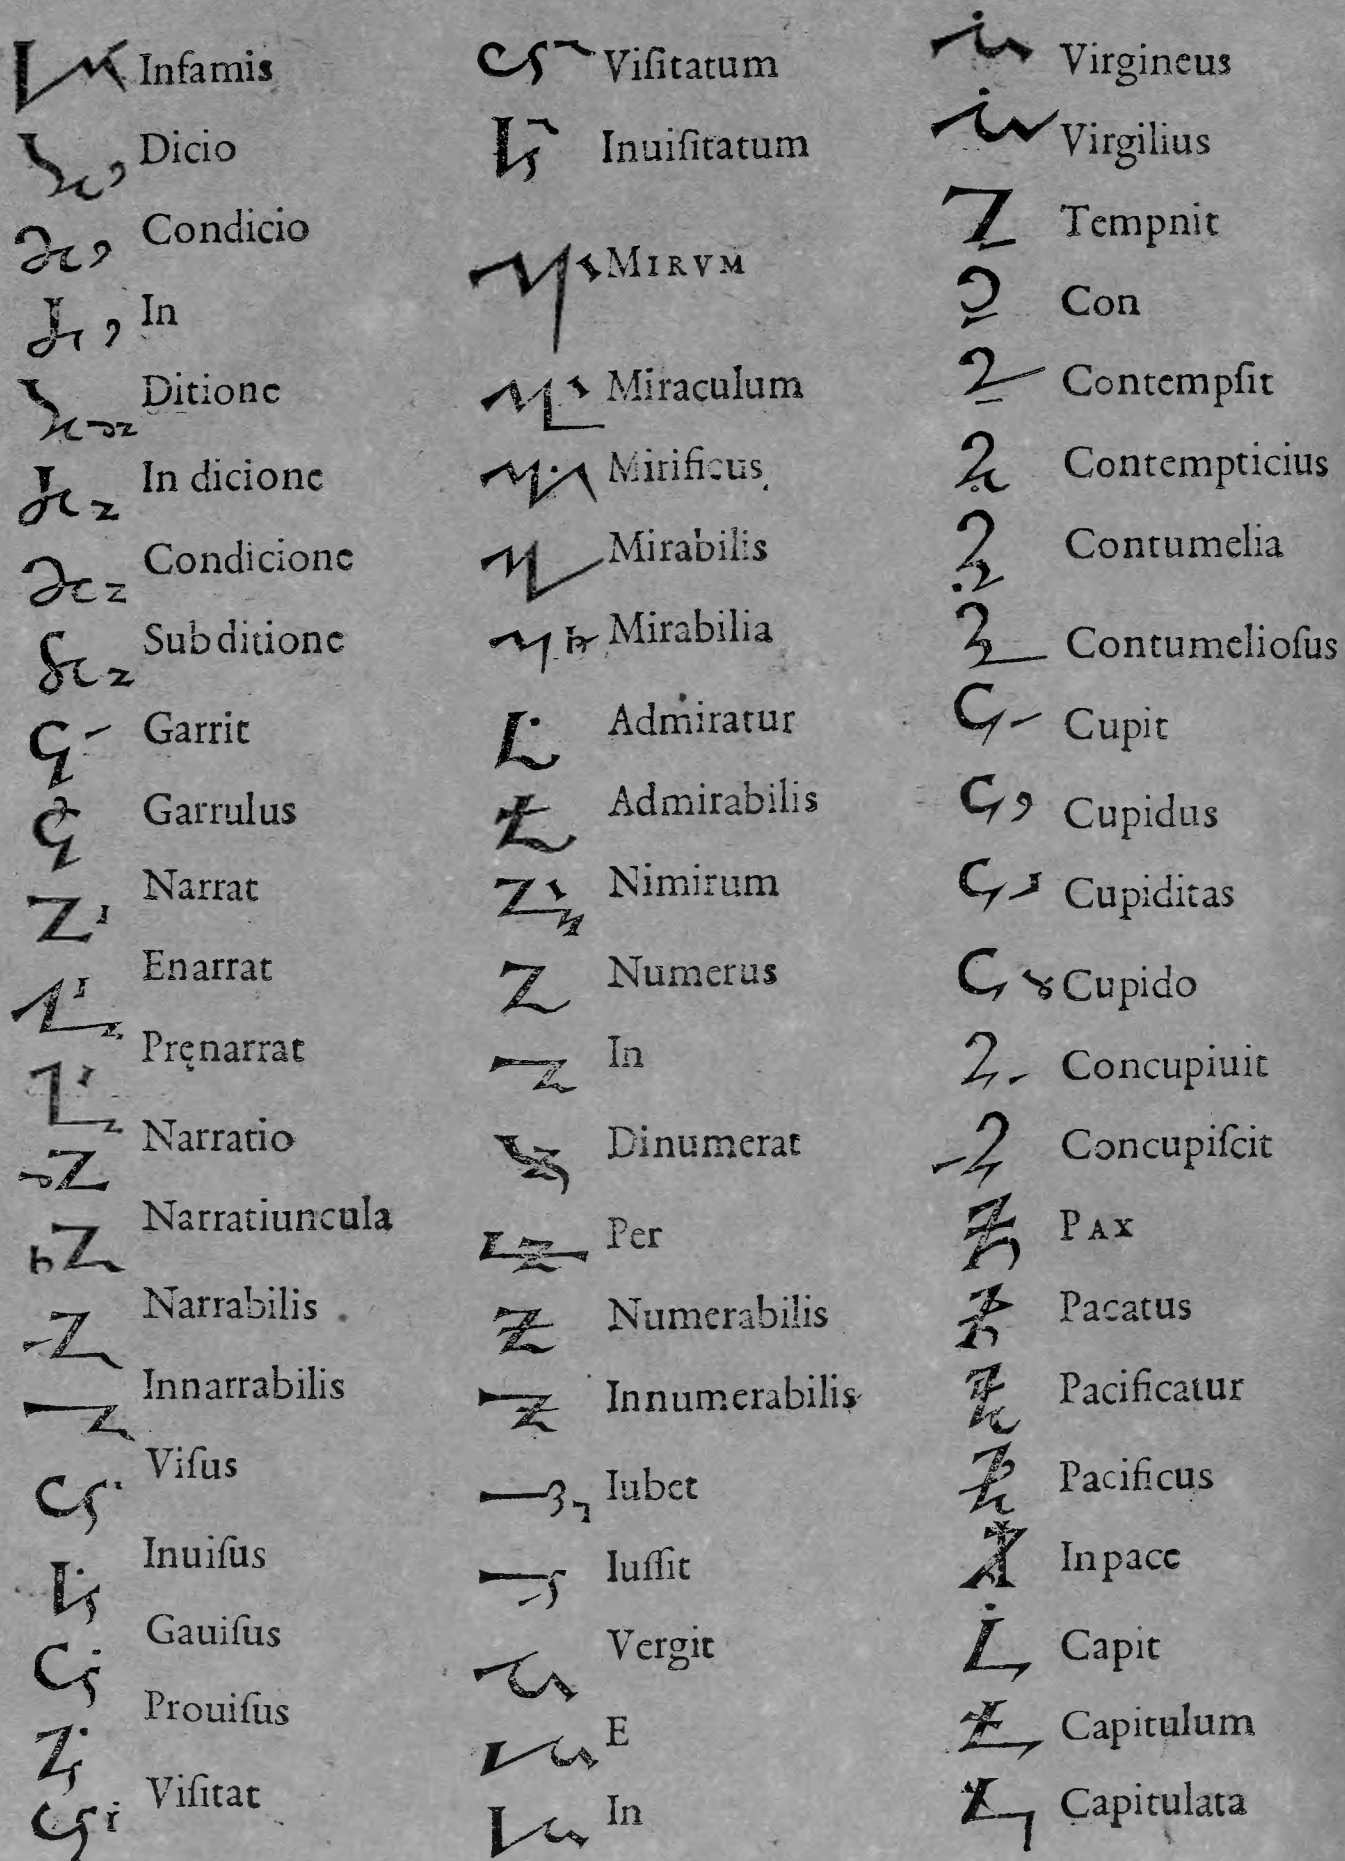 Infamis
Dicio
Condicio
In
Ditione
In dicione
Condicione
Subditione
Garrit
Garrulus
Narrat
Enarrat
Pręnarrat
Narratio
Narratiuncula
Narrabilis
Innarrabilis
Viſus
Inuiſus
Gauiſus
Prouiſus
Viſitat
Viſitatum
Inuiſitatum
MIRVM
Miraculum
Mirificus
Mirabilis
Mirabilia
Admiratur
Admirabilis
Nimirum
Numerus
In
Dinumerat
Per
Numerabilis
Innumerabilis
Iubet
Iuſſit
Vergit
E
In
Virgineus
Virgilius
Tempnit
Con
Contempſit
Contempticius
Contumelia
Contumelioſus
Cupit
Cupidus
Cupiditas
Cupido
Concupiuit
Concupiſcit
PAX
Pacatus
Pacificatur
Pacificus
Inpace
Capit
Capitulum
Capitulata